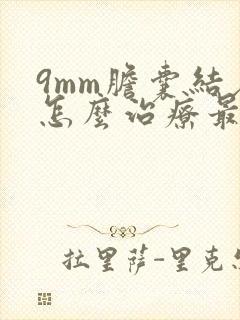 9mm膽囊結
怎麼治療最
拉里薩-里克